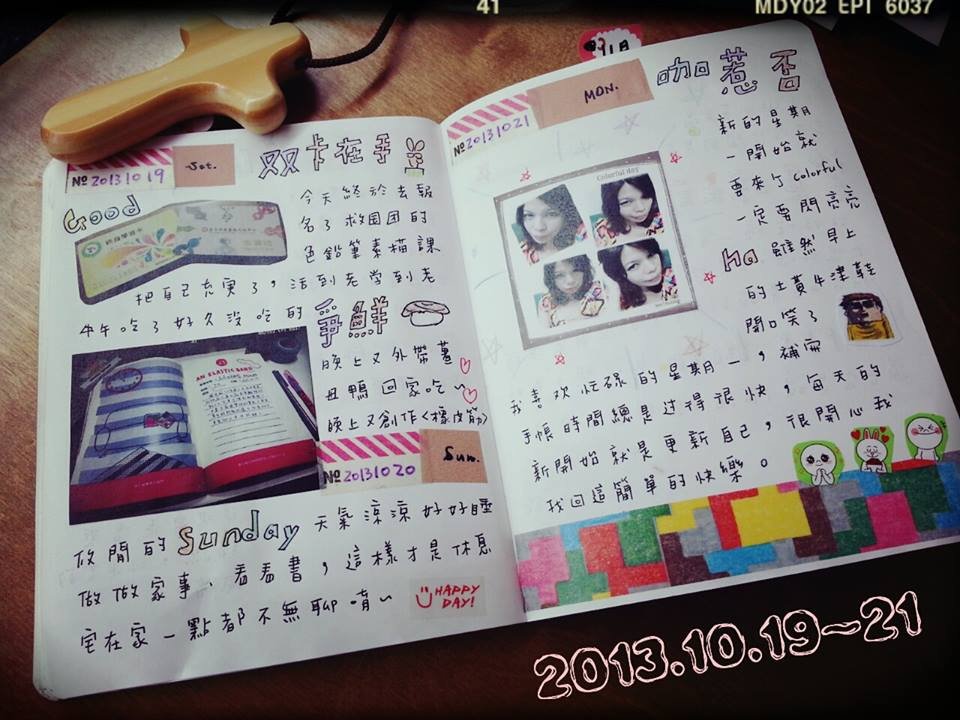 41
MDY02 EPT 6037
№ 20131019
Sat.
双卡在手
Good
今天終於去報
名了救国团的
色鉛筆素描課
把自己充實了，活到老学到老
中午吃了好久沒吃的
爭鮮
晚上又外帶薑
母鴨回家吃~
晚上又創作<橡皮筋>
AN ELASTIC BAND
№ 20131020
Sun.
悠閒的 Sunday 天氣涼涼好好睡
做做家事、看看書，這樣才是休息
宅在家一點都不無聊唷~
HAPPY
DAY!
11月
№ 20131021
MON.
咖惹否
Colorful day
新的星期
一開始就
要來个 colorful
一定要閃亮亮
ha 雖然早上
的土黃牛津鞋
開口笑了
我喜欢忙碌的星期一，補寫
手帳時間總是过得很快，每天的
新開始就是更新自己，很開心我
找回這簡單的快樂。
2013.10.19~21